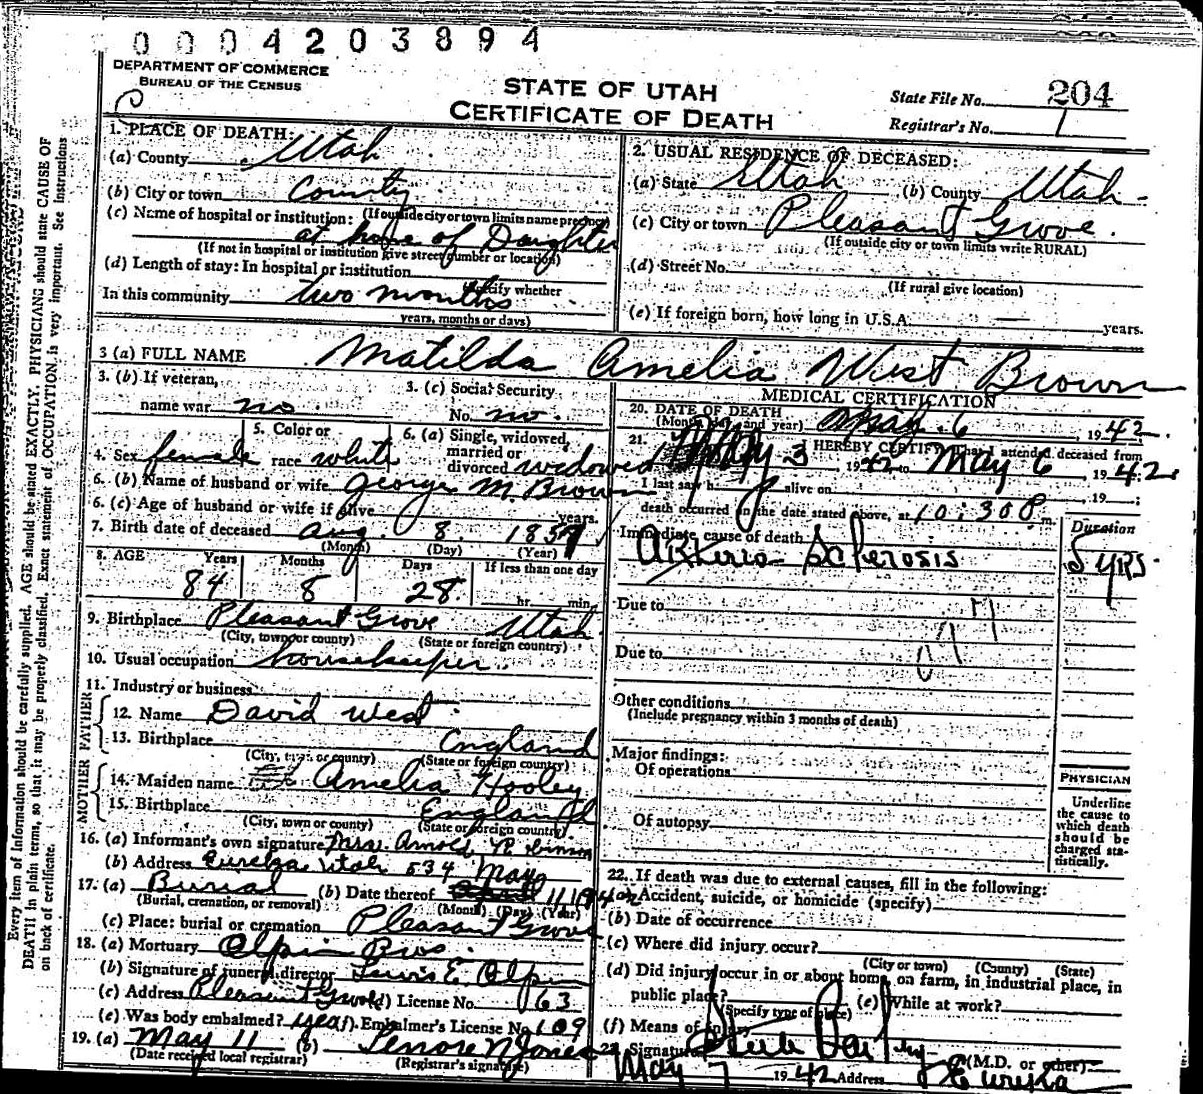 0004203894
DEPARTMENT OF COMMERCE
BUREAU OF THE CENSUS
STATE OF UTAH
CERTIFICATE OF DEATH
State File No. 204
Registrar's No. 1
Every item of information should be carefully supplied. AGE should be stated EXACTLY. PHYSICIANS should state CAUSE OF
DEATH in plain terms, so that it may be properly classified. Exact statement of OCCUPATION is very important. See Instructions
on back of certificate.
1. PLACE OF DEATH:
(a) County Utah
(b) City or town County
(If outside city or town limits name precinct)
(c) Name of hospital or institution:
at home of Daughter
(If not in hospital or institution give street number or location)
(d) Length of stay: In hospital or institution
(Specify whether
In this community two months
years, months or days)
2. USUAL RESIDENCE OF DECEASED:
(a) State Utah (b) County Utah
(c) City or town Pleasant Grove.
(If outside city or town limits write RURAL)
(d) Street No.
(If rural give location)
(e) If foreign born, how long in U.S.A. — years.
3 (a) FULL NAME Matilda Amelia West Brown
3. (b) If veteran, name war no
3. (c) Social Security No. no.
4. Sex female 5. Color or race white
6. (a) Single, widowed, married or divorced widowed
6. (b) Name of husband or wife George M. Brown
6. (c) Age of husband or wife if alive years.
7. Birth date of deceased Aug. 8. 1857
(Month) (Day) (Year)
8. AGE Years Months Days If less than one day
84 8 28 hr. min.
9. Birthplace Pleasant Grove Utah
(City, town or county) (State or foreign country)
10. Usual occupation housekeeper.
11. Industry or business
FATHER
12. Name David West
13. Birthplace England
(City, town or county) (State or foreign country)
MOTHER
14. Maiden name Amelia Hooley
15. Birthplace England
(City, town or county) (State or foreign country)
16. (a) Informant's own signature Mrs. Arnold
(b) Address Eureka Utah 534
17. (a) Burial (b) Date thereof May 11 1942
(Burial, cremation, or removal) (Month) (Day) (Year)
(c) Place: burial or cremation Pleasant Grove
18. (a) Mortuary Olpin Bros.
(b) Signature of funeral director Lewis E. Olpin
(c) Address Pleasant Grove (d) License No. 163
(e) Was body embalmed? yes (f). Embalmer's License No. 109
19. (a) May 11 (b) Lenore N Jones
(Date received local registrar) (Registrar's signature)
MEDICAL CERTIFICATION
20. DATE OF DEATH
(Month, day and year) 6, 1942.
21. I HEREBY CERTIFY, That I attended deceased from
May 3 1942 to May 6, 1942
I last saw h alive on , 19 ;
death occurred on the date stated above, at 10:30 P m.
Duration
Immediate cause of death
Arterio Sclerosis 5 yrs.
Due to
Due to
Other conditions
(Include pregnancy within 3 months of death)
Major findings:
Of operations
Of autopsy
PHYSICIAN
Underline
the cause to
which death
should be
charged sta-
tistically.
22. If death was due to external causes, fill in the following:
(a) Accident, suicide, or homicide (specify)
(b) Date of occurrence
(c) Where did injury occur?
(City or town) (County) (State)
(d) Did injury occur in or about home, on farm, in industrial place, in
public place? (e) While at work?
(Specify type of place)
(f) Means of injury
23. Signature Steele Bailey (M.D. or other)
May 7 1942 Address Eureka